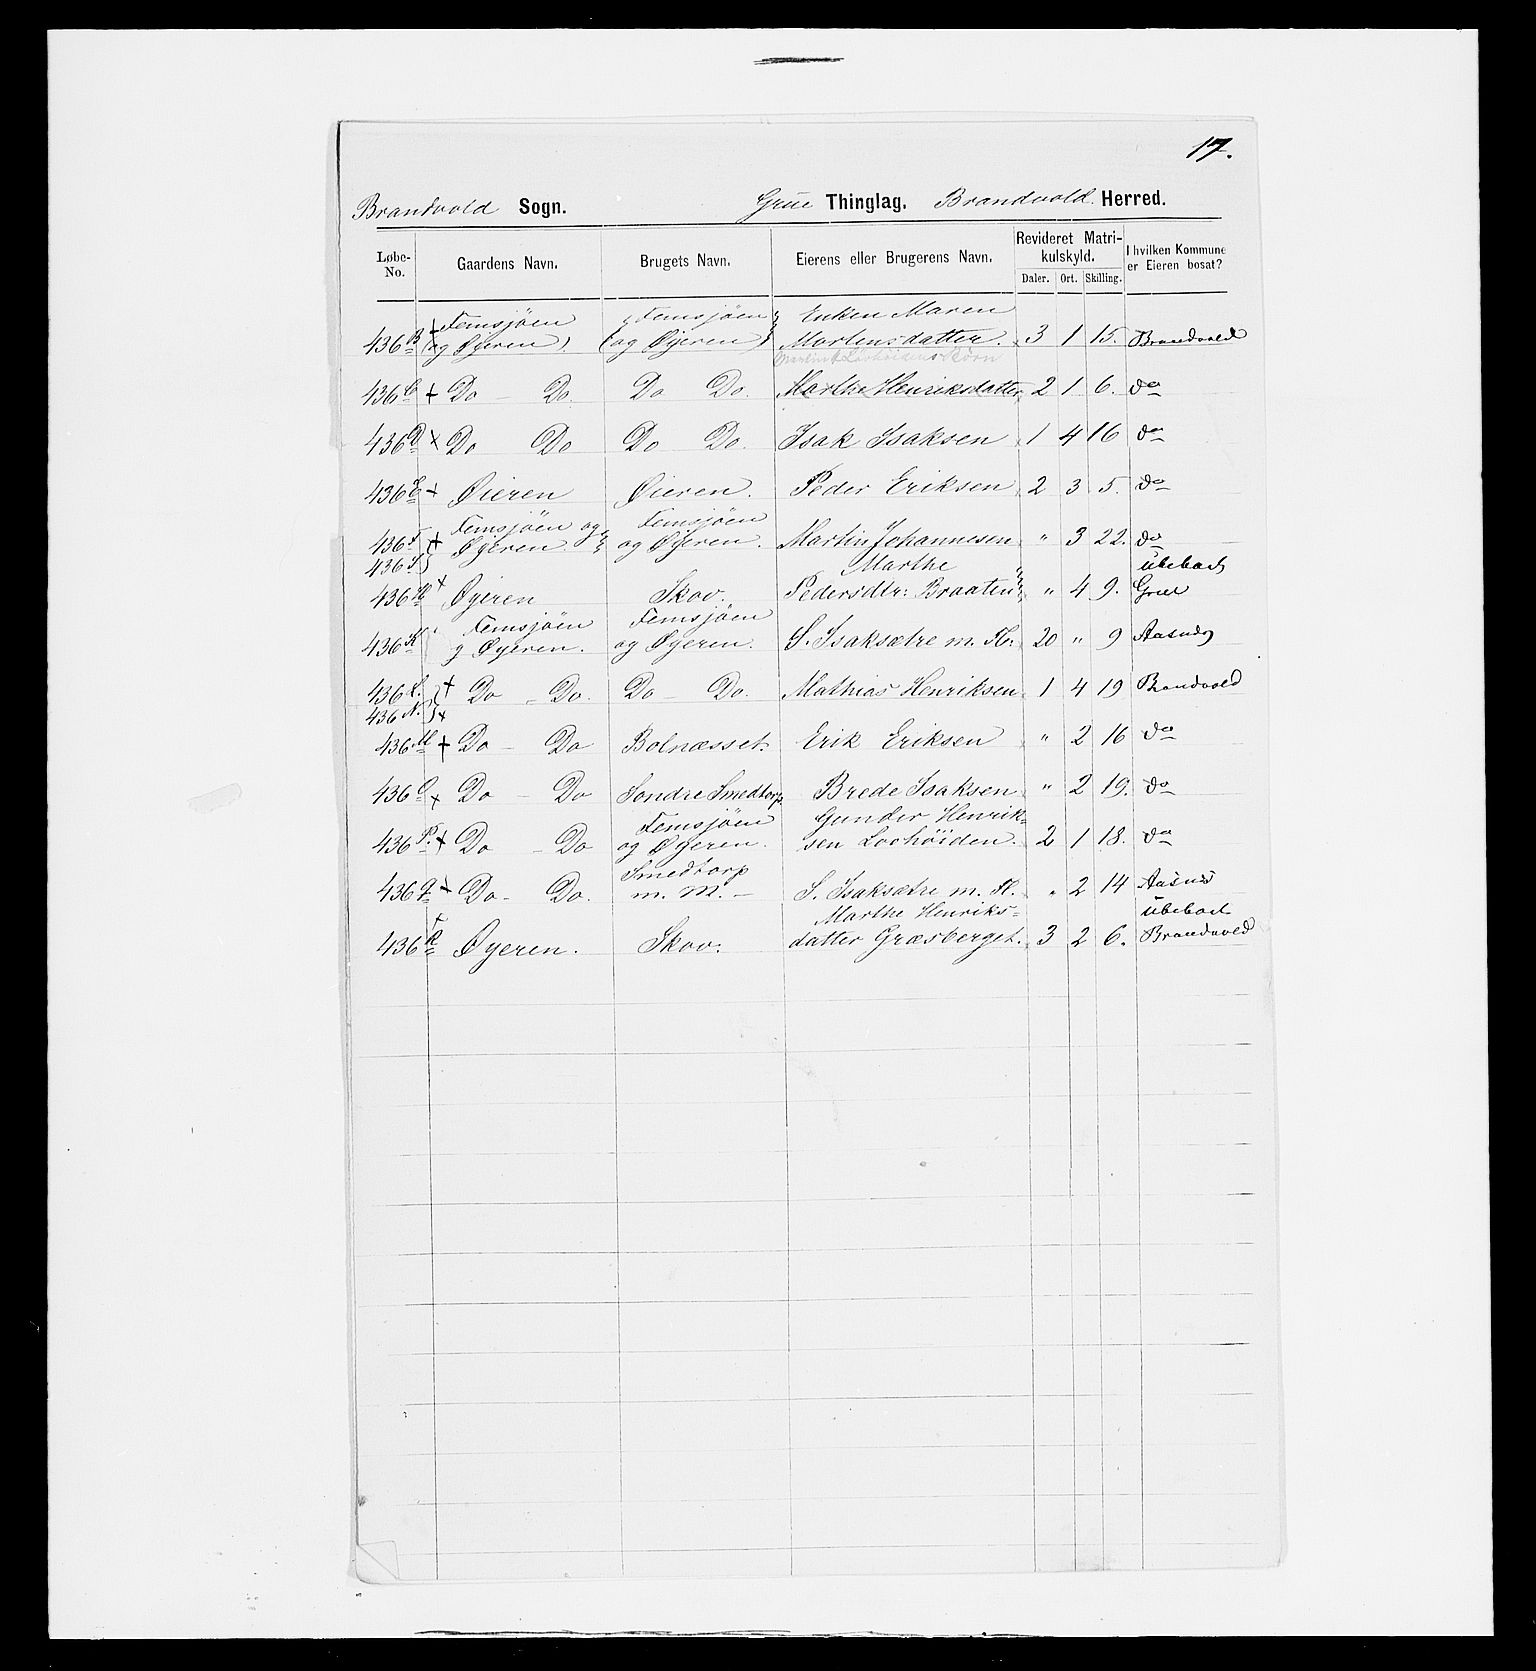 17.
Brandvold Sogn. Grue Thinglag. Brandvold Herred.
Løbe-No. Gaardens Navn. Brugets Navn. Eierens eller Brugerens Navn. Revideret Matrikulskyld. Daler. Ort. Skilling. I hvilken Kommune er Eieren bosat?
Femsjöen Femsjöen Enken Maren
436 B + (og Øyeren). (og Øyeren) Martensdatter. 3 1 15. Brandvold
436 C + Do - Do. Do Do. Marthe Henriksdatter 2 1 6. do
436 D + Do Do Do Do. Isak Isaksen 1 4 16 do
436 E + Øieren Øieren. Peder Eriksen 2 3 5. do
Femsjöen og Femsjöen
436 F + Øyeren og Øyeren. Martin Johannesen " 3 22. do
436 Marthe ubeboet
436 H + Øyeren Skov. Pedersdtr: Braaten " 4 9. Grue
Femsjöen Femsjöen
436 K g Øyeren. og Øyeren. S. Isaksætre m. Fl: 20 " 9 Aasnes
436 L. + Do - Do. Do - Do. Mathias Henriksen 1 4 19 Brandvold
436 N. +
436 M + Do - Do Bolnæsset. Erik Eriksen " 2 16 do
436 O + Do - Do Søndre Smedtorp Brede Isaksen " 2 19. do
Femsjöen Gunder Henrik-
436 P. + Do - Do og Øyeren. sen Lovhöiden. 2 1 18. do
Smedtorp
436 q + Do - Do. m. M. - S. Isaksætre m. Fl. " 2 14 Aasnes
Marthe Henriks- ubeboet
436 R + Øyeren. Skov. datter Græsberget. 3 2 6. Brandvold